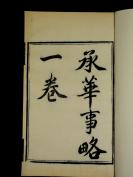 承華事略
一卷